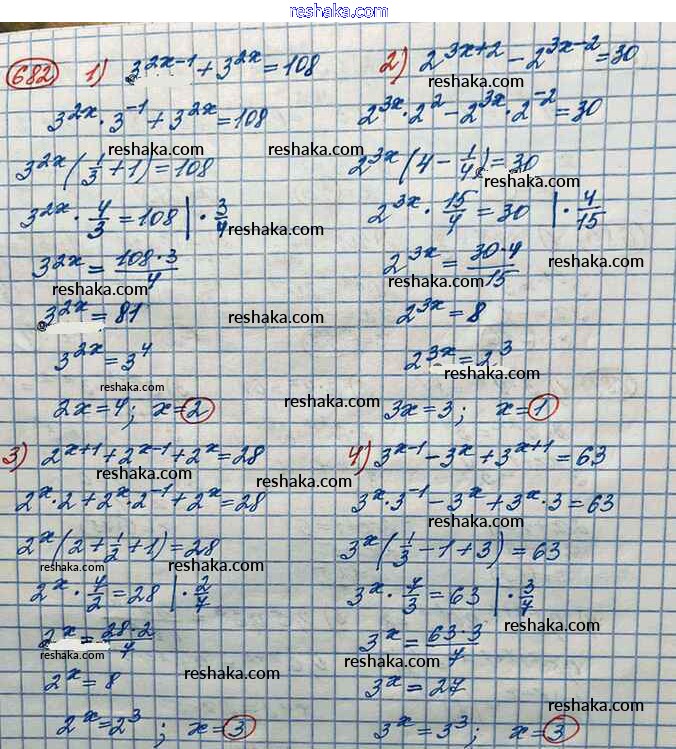 reshaka.com
682 1) 3^{2x-1} + 3^{2x} = 108
reshaka.com
3^{2x} · 3^{-1} + 3^{2x} = 108
reshaka.com
3^{2x} (1/3 + 1) = 108
3^{2x} · 4/3 = 108 | · 3/4
reshaka.com
3^{2x} = 108·3/4
reshaka.com
3^{2x} = 81
reshaka.com
3^{2x} = 3^4
reshaka.com
2x = 4; x = 2
2) 2^{3x+2} - 2^{3x-2} = 30
reshaka.com
2^{3x} · 2^2 - 2^{3x} · 2^{-2} = 30
2^{3x} (4 - 1/4) = 30
reshaka.com
2^{3x} · 15/4 = 30 | · 4/15
reshaka.com
2^{3x} = 30·4/15
reshaka.com
2^{3x} = 8
2^{3x} = 2^3
reshaka.com
3x = 3; x = 1
3) 2^{x+1} + 2^{x-1} + 2^x = 28
reshaka.com
2^x · 2 + 2^x · 2^{-1} + 2^x = 28
reshaka.com
2^x (2 + 1/2 + 1) = 28
reshaka.com
2^x · 7/2 = 28 | · 2/7
2^x = 28·2/7
reshaka.com
reshaka.com
2^x = 8
2^x = 2^3; x = 3
reshaka.com
4) 3^{x-1} - 3^x + 3^{x+1} = 63
reshaka.com
3^x · 3^{-1} - 3^x + 3^x · 3 = 63
reshaka.com
3^x (1/3 - 1 + 3) = 63
3^x · 7/3 = 63 | · 3/7
reshaka.com
3^x = 63·3/7
reshaka.com
3^x = 27
reshaka.com
3^x = 3^3; x = 3